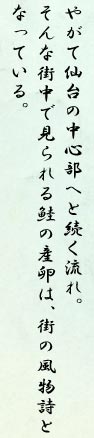 やがて仙台の中心部へと続く流れ。
そんな街中で見られる鮭の産卵は、街の風物詩と
なっている。